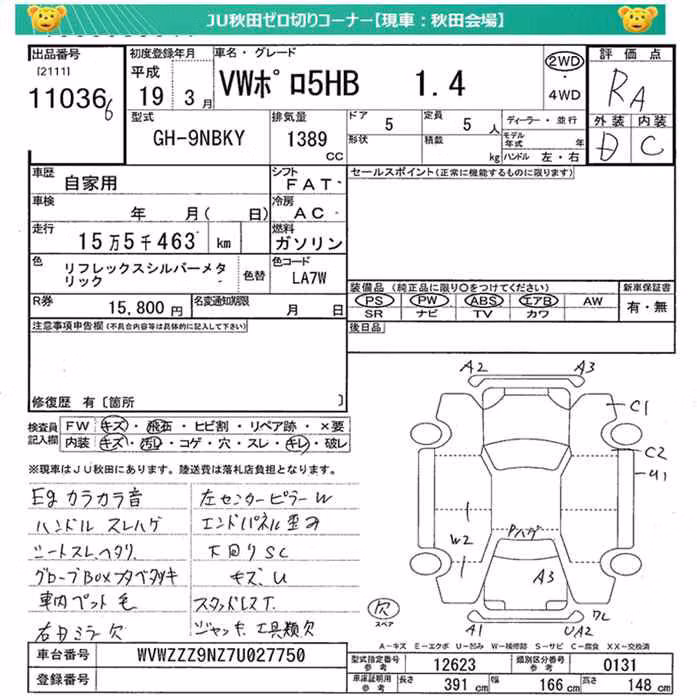 JU秋田ゼロ切りコーナー【現車:秋田会場】
出品番号
[2111]
11036
6
初度登録年月
平成
19 3月
車名・グレード
VWポロ5HB 1.4
2WD
・
4WD
評価点
RA
外装 内装
D C
型式
GH-9NBKY
排気量
1389
CC
ドア
5
定員
5 人
形状
積載
kg
ディーラー・並行
モデル年式 年
ハンドル 左・右
車歴
自家用
シフト
FAT
車検
年 月( 日)
冷房
AC
走行
15万5千463 km
燃料
ガソリン
色
リフレックスシルバーメタリック
色替
色コード
LA7W
R券
15,800円
名変通知期限
月 日
セールスポイント(正常に機能するものに限ります)
装備品 (純正品に限り○をつけてください)
PS PW ABS エアB AW
SR ナビ TV カワ
新車保証書
有・無
後日品
注意事項申告欄(不具合内容等は具体的に記入して下さい)
修復歴 有〔箇所 〕
検査員記入欄
FW キズ・飛石・ヒビ割・リペア跡・×要
内装 キズ・汚レ・コゲ・穴・スレ・キレ・破レ
※現車はJU秋田にあります。陸送費は落札店負担となります。
Eg カラカラ音
ハンドル スレハゲ
シートスレ、ヘタリ、
グローブBOXフタベタツキ
車内ペット毛
右Dミラー欠
左センターピラーW
エンドパネル歪み
下回りSC
キズ、U
スタッドレスT.
ジャッキ、工具類欠
A2 A3
C1
C2
U1
W2
Pハゲ
A3
欠
スペア
A1
UA2
ワレ
A-キズ E-エクボ U-凹み W-補修跡 S-サビ C-腐食 XX-交換済
車台番号
WVWZZZ9NZ7U027750
登録番号
型式指定番号
参考
12623
類別区分番号
参考
0131
車庫証明用
参考
長さ
391 cm
幅
166 cm
高さ
148 cm